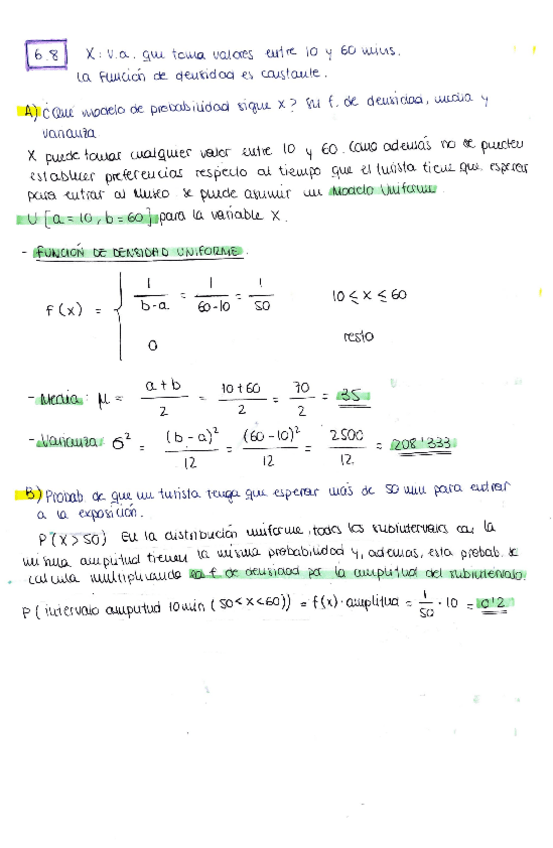 6.8 X: v.a. que toma valores entre 10 y 60 mins.
La función de densidad es constante.
A) ¿Qué modelo de probabilidad sigue X? Su f. de densidad, media y
varianza
X puede tomar cualquier valor entre 10 y 60. Como además no se pueden
establecer preferencias respecto al tiempo que el turista tiene que esperar
para entrar al Museo se puede asumir un Modelo Uniforme
U [a = 10, b = 60] para la variable X.
- FUNCIÓN DE DENSIDAD UNIFORME.
f(x) = { 1/(b-a) = 1/(60-10) = 1/50 10 ≤ x ≤ 60
0 resto
- Media: μ = (a+b)/2 = (10+60)/2 = 70/2 = 35
- Varianza: σ² = (b-a)²/12 = (60-10)²/12 = 2500/12 = 208'333
B) Probab. de que un turista tenga que esperar más de 50 min para entrar
a la exposición.
P(X>50) En la distribución uniforme, todos los subintervalos con la
misma amplitud tienen la misma probabilidad y, además, esta probab. se
calcula multiplicando la f de densidad por la amplitud del subintervalo.
P(intervalo amputud 10min (50<x<60)) = f(x)·amplitud = 1/50 · 10 = 0'2